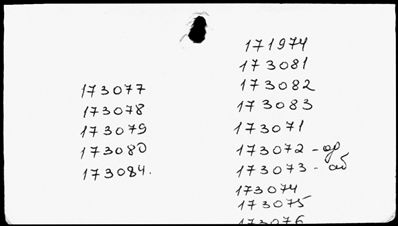 173077
173078
173079
173080
173084.
171974
173081
173082
173083
173071
173072 -
173073 - аб
173074
173075
173076